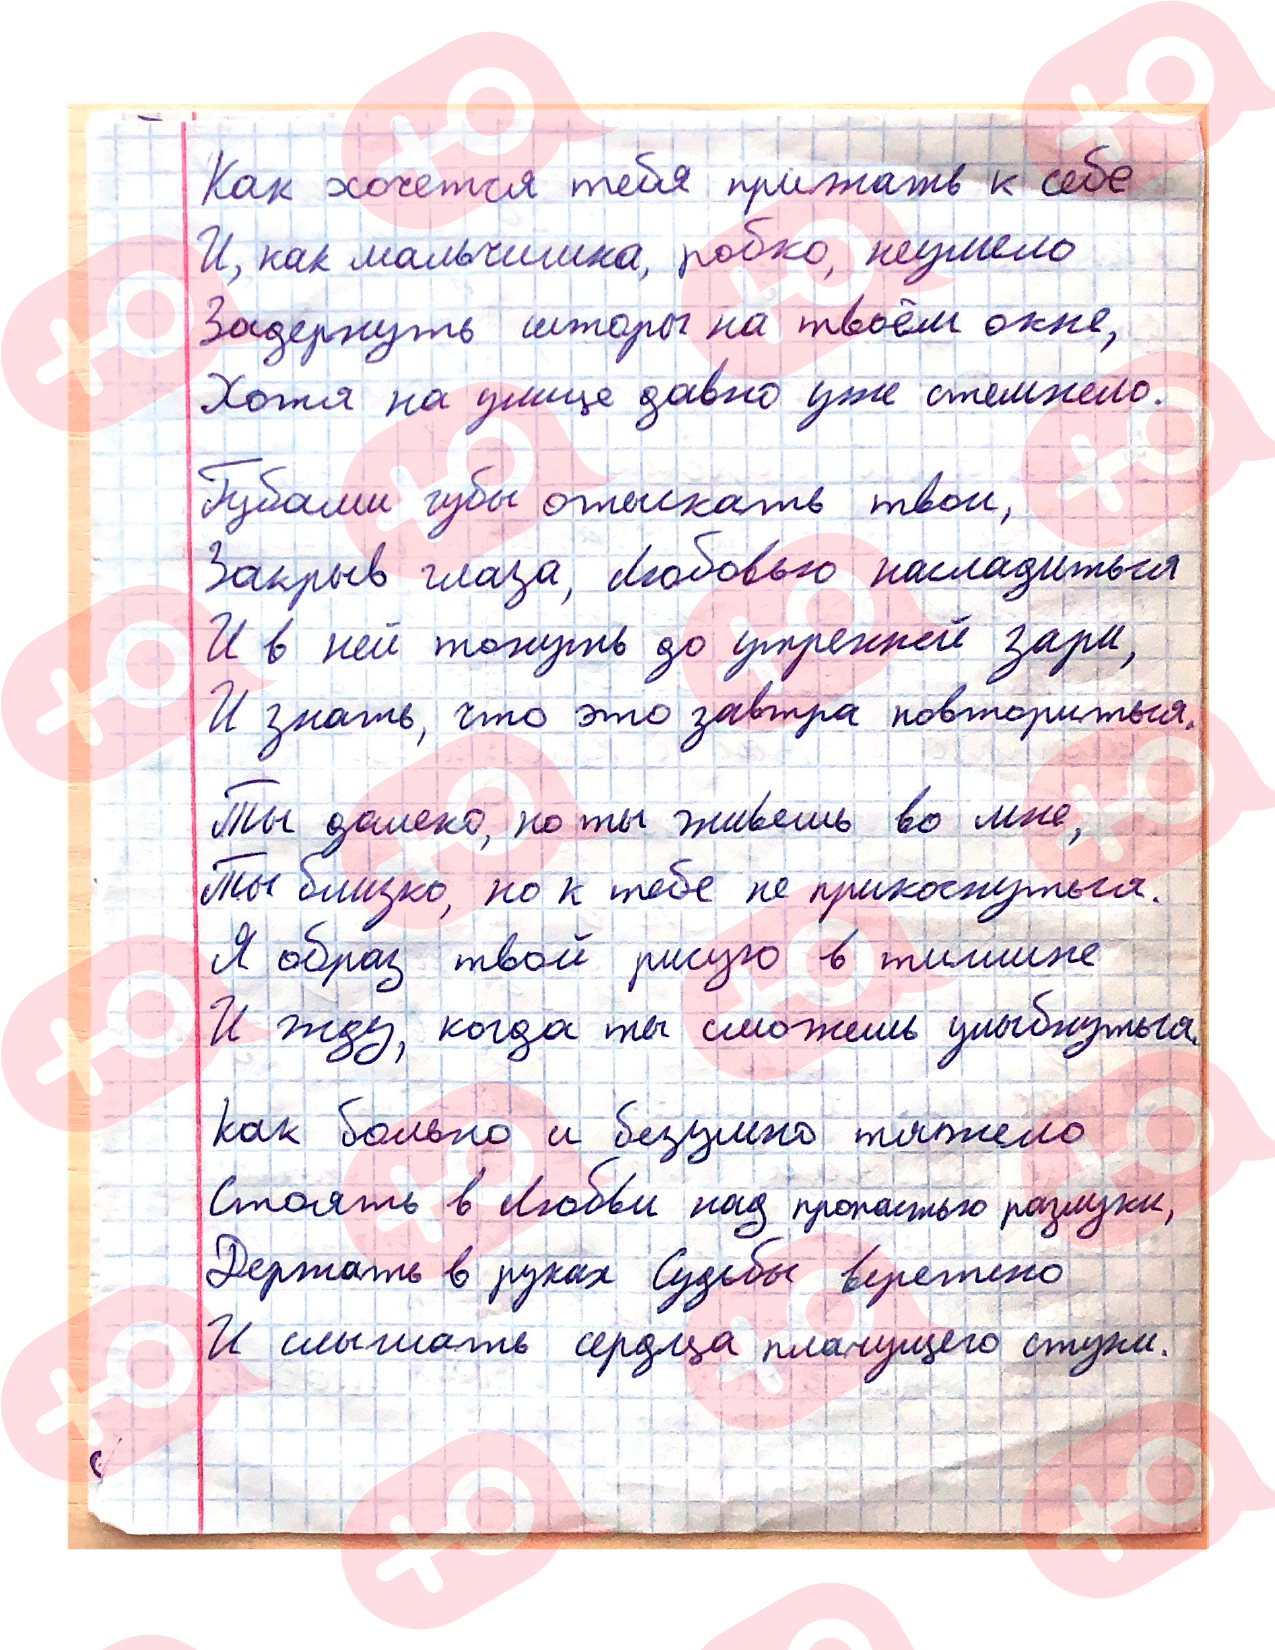 Как хочется тебя прижать к себе
И, как мальчишка, робко, неумело
Задернуть шторы на твоём окне,
Хотя на улице давно уже стемнело.
Губами губы отыскать твои,
Закрыв глаза, Любовью насладиться
И в ней тонуть до утренней зари,
И знать, что это завтра повториться.
Ты далеко, но ты живешь во мне,
Ты близко, но к тебе не прикоснуться.
Я образ твой рисую в тишине
И жду, когда ты сможешь улыбнуться.
Как больно и безумно тяжело
Стоять в Любви над пропастью разлуки,
Держать в руках Судьбы веретено
И слышать сердца плачущего стуки.